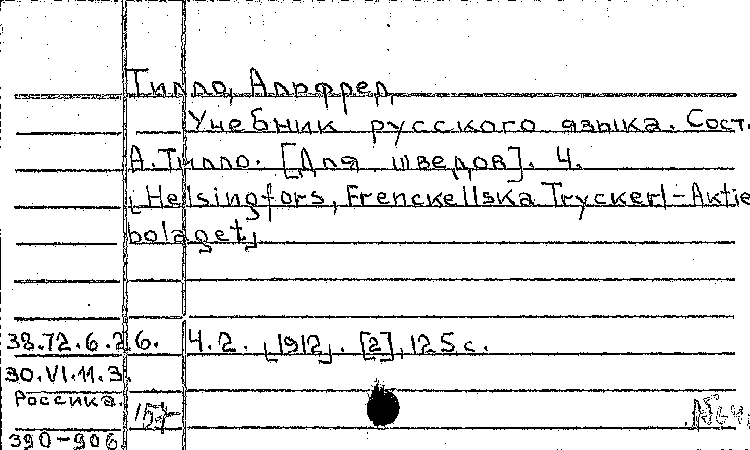 Тилло, Альфред,
Учебник русского языка. Сост.
А. Тилло. [Для шведов]. Ч.
[Helsingfors, Frenckellska Tryckeri-Aktie
bolaget]
38.72.6.26. Ч.2. [1912]. [2], 125 с.
30.VI.11.3.
Россика. 157
390-906